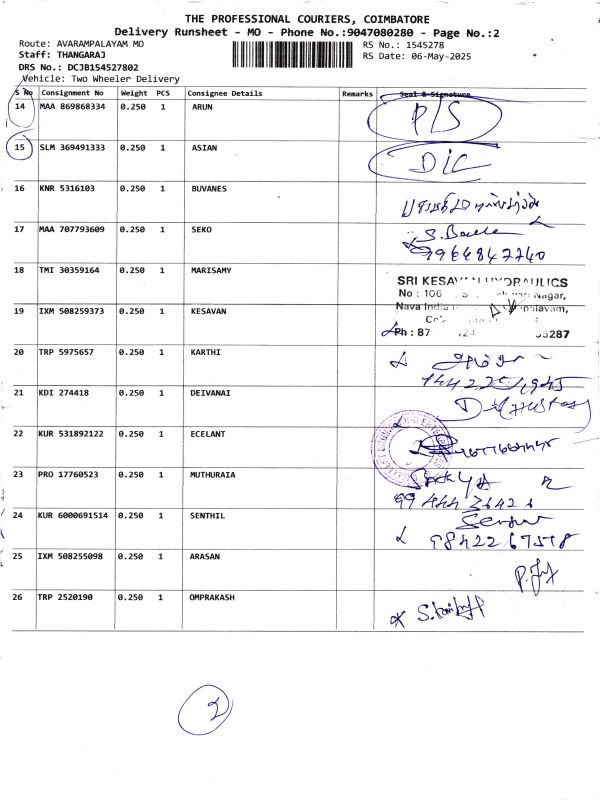 THE PROFESSIONAL COURIERS, COIMBATORE
Delivery Runsheet - MO - Phone No.:9047080280 - Page No.:2
Route: AVARAMPALAYAM MO
Staff: THANGARAJ
DRS No.: DCJB154527802
Vehicle: Two Wheeler Delivery
RS No.: 1545278
RS Date: 06-May-2025
S No Consignment No Weight PCS Consignee Details Remarks Seal & Signature
14 MAA 869868334 0.250 1 ARUN P/S
15 SLM 369491333 0.250 1 ASIAN D/C
16 KNR 5316103 0.250 1 BUVANES
17 MAA 707793609 0.250 1 SEKO
9964842240
18 TMI 30359164 0.250 1 MARISAMY
SRI KESAVAN HYDRAULICS
No : 106 Nagar,
Nava India
19 IXM 508259373 0.250 1 KESAVAN
Ph : 87
20 TRP 5975657 0.250 1 KARTHI
21 KDI 274418 0.250 1 DEIVANAI
22 KUR 531892122 0.250 1 ECELANT
23 PRO 17760523 0.250 1 MUTHURAIA
24 KUR 6000691514 0.250 1 SENTHIL
9842267578
25 IXM 508255098 0.250 1 ARASAN
26 TRP 2520190 0.250 1 OMPRAKASH
2